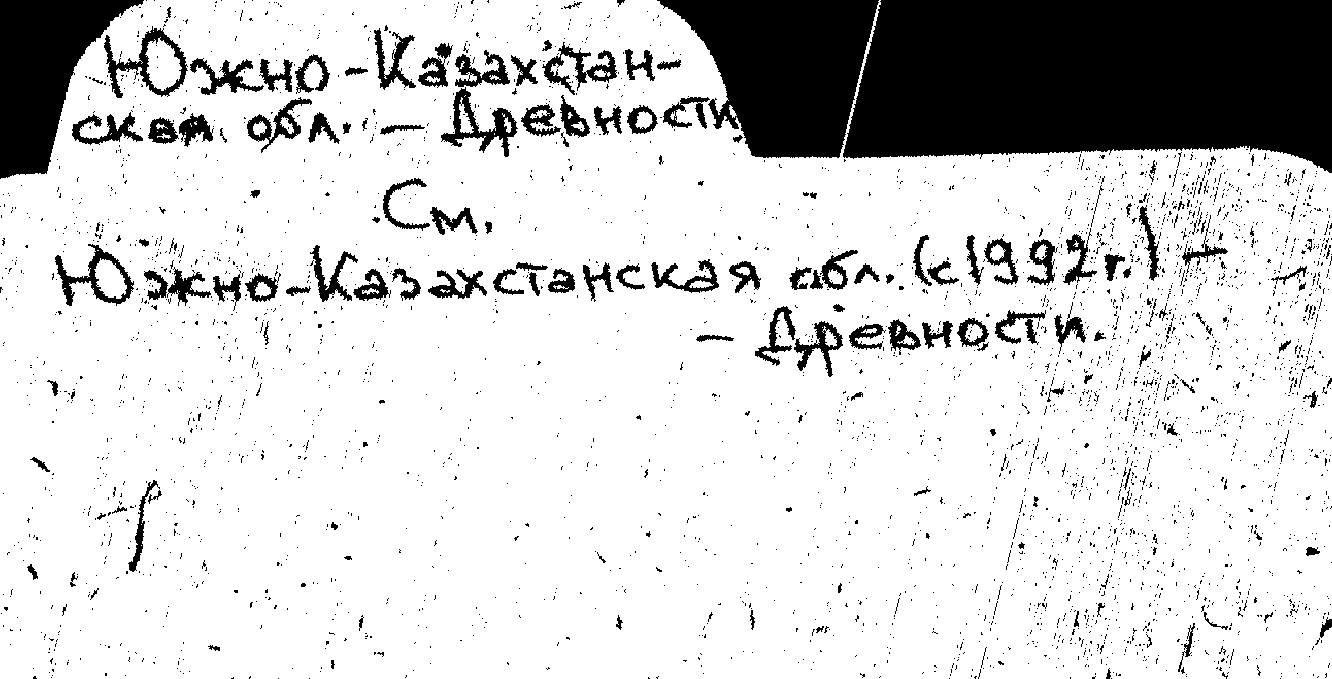 Южно-Казахстан-
ская обл. — Древности
См.
Южно-Казахстанская обл. (с 1992 г.) —
— Древности.